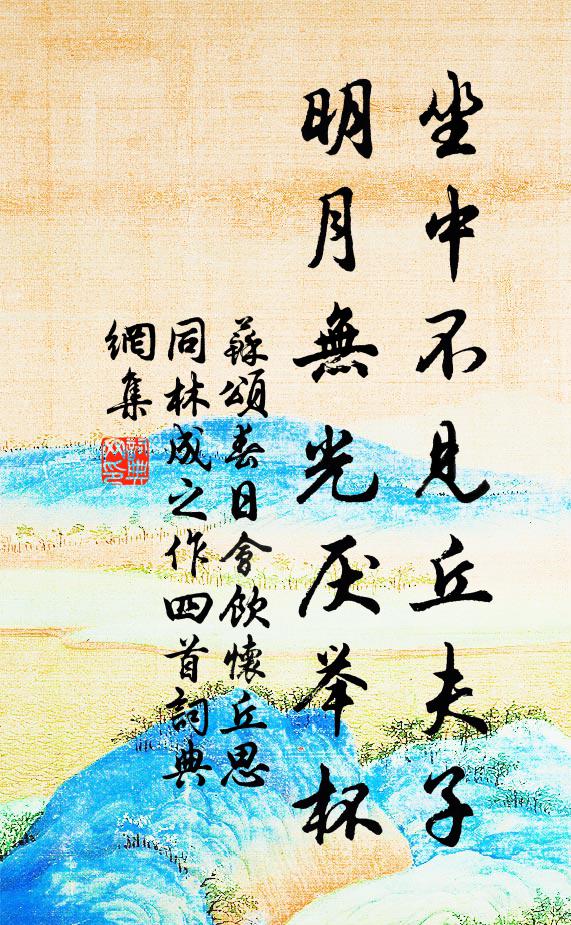 坐中不見丘夫子
明月無光厌举杯
蘇頌春日會飲懷丘思
同林成之作四首詞典
網集